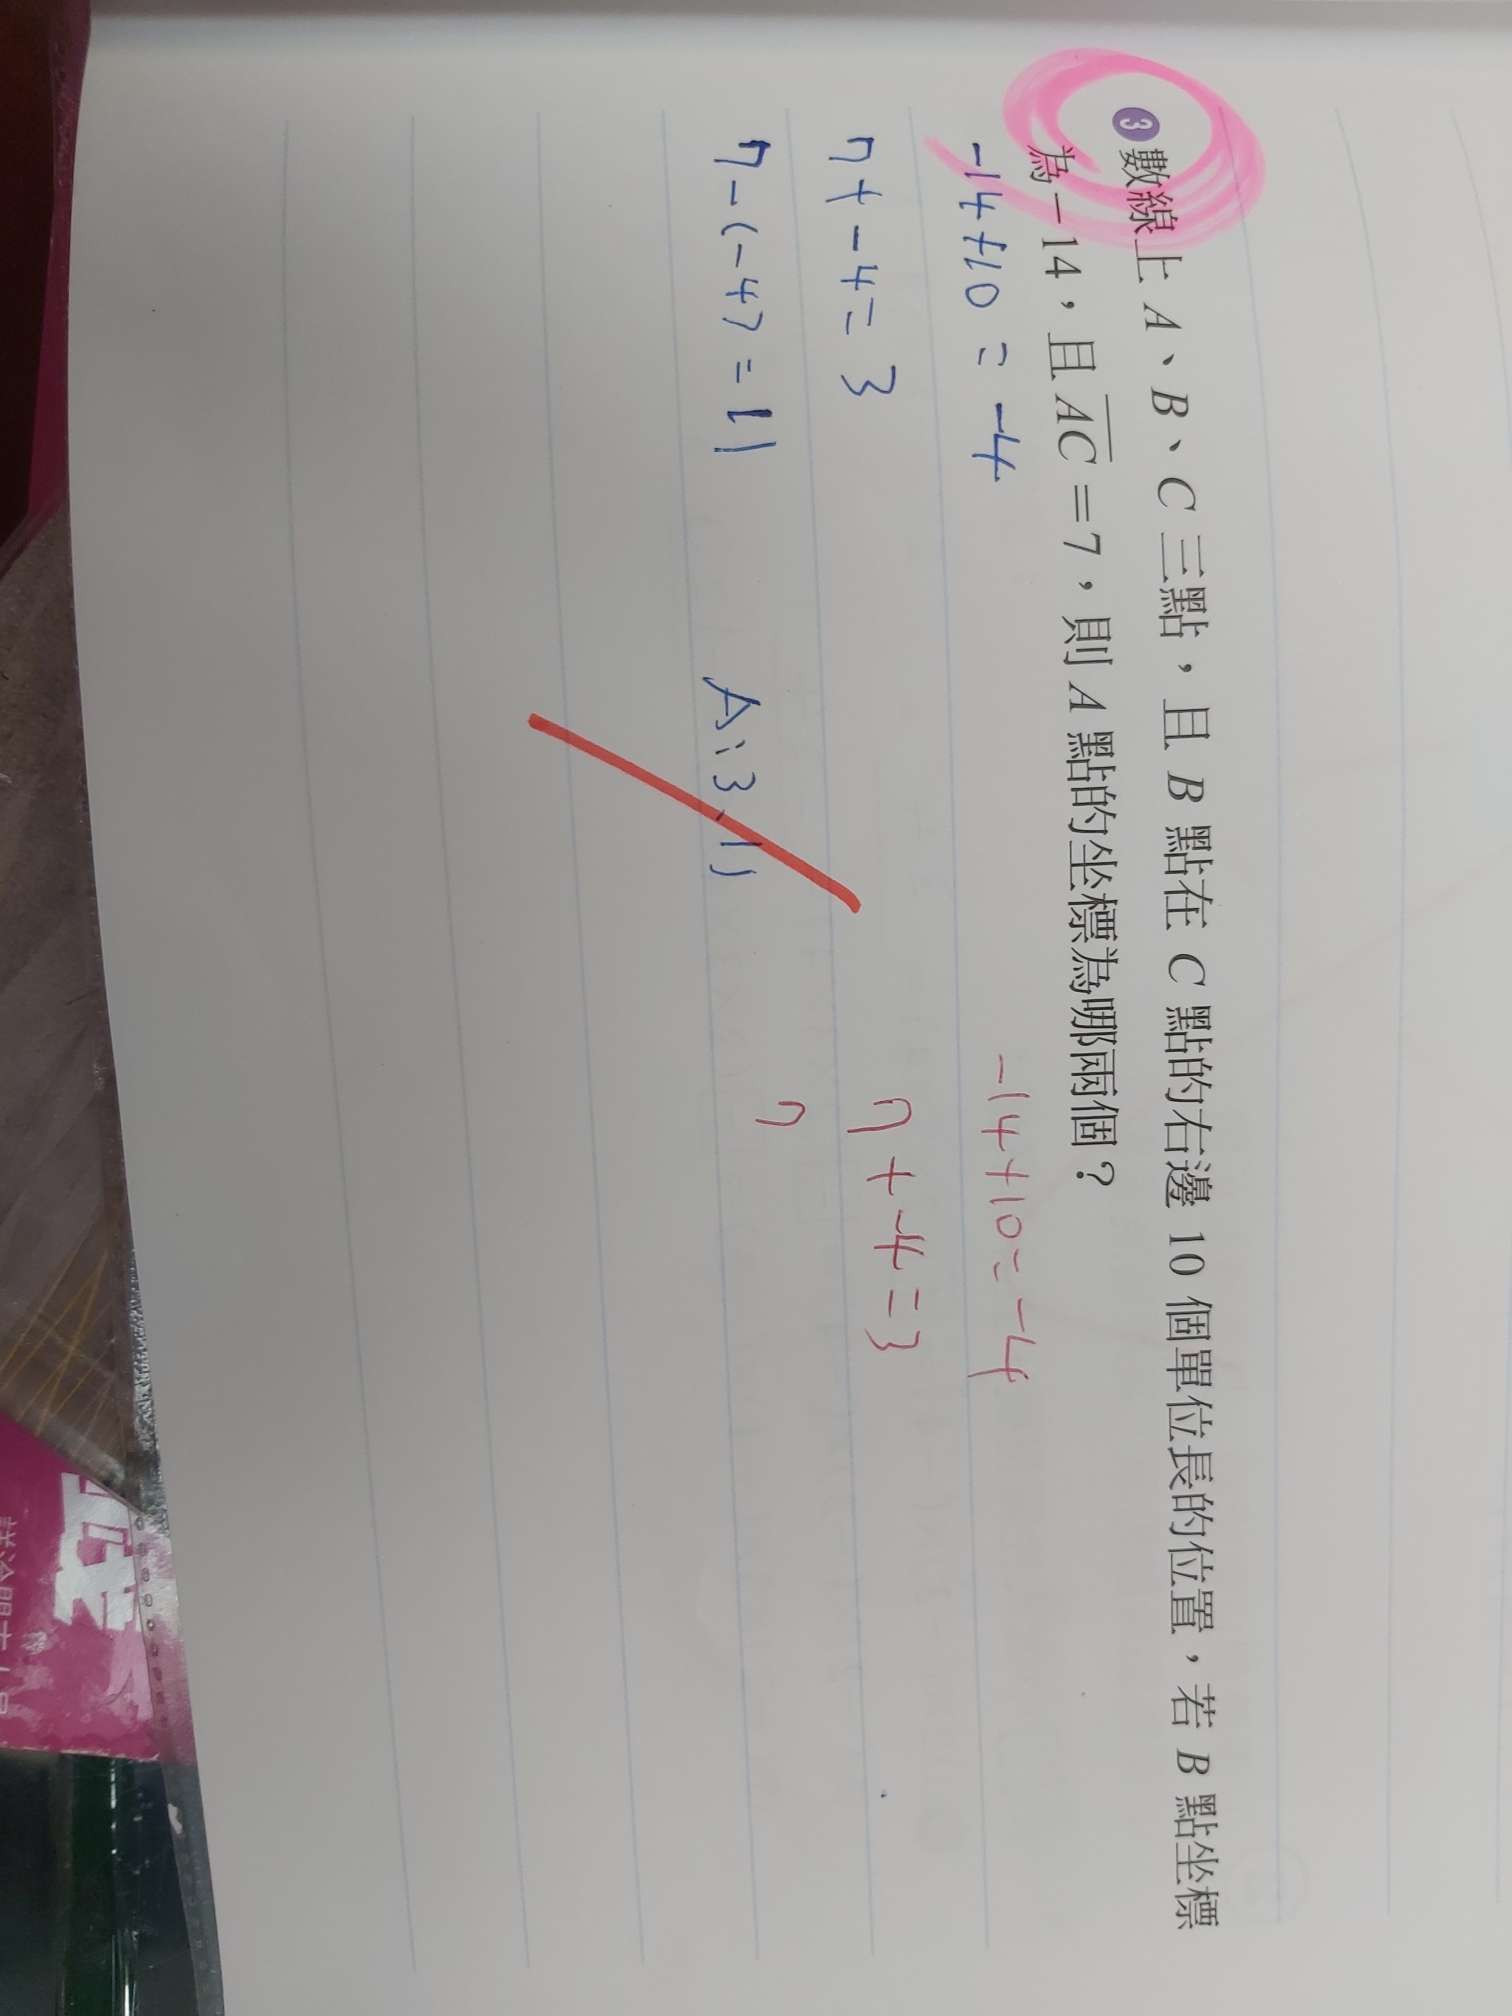 3 數線上 A、B、C 三點，且 B 點在 C 點的右邊 10 個單位長的位置，若 B 點坐標
為－14，且 AC＝7，則 A 點的坐標為哪兩個？
-14+10=-4
7+-4=3
7-(-4)=11
A:3、11
-14+10=-4
7+-4=3
7